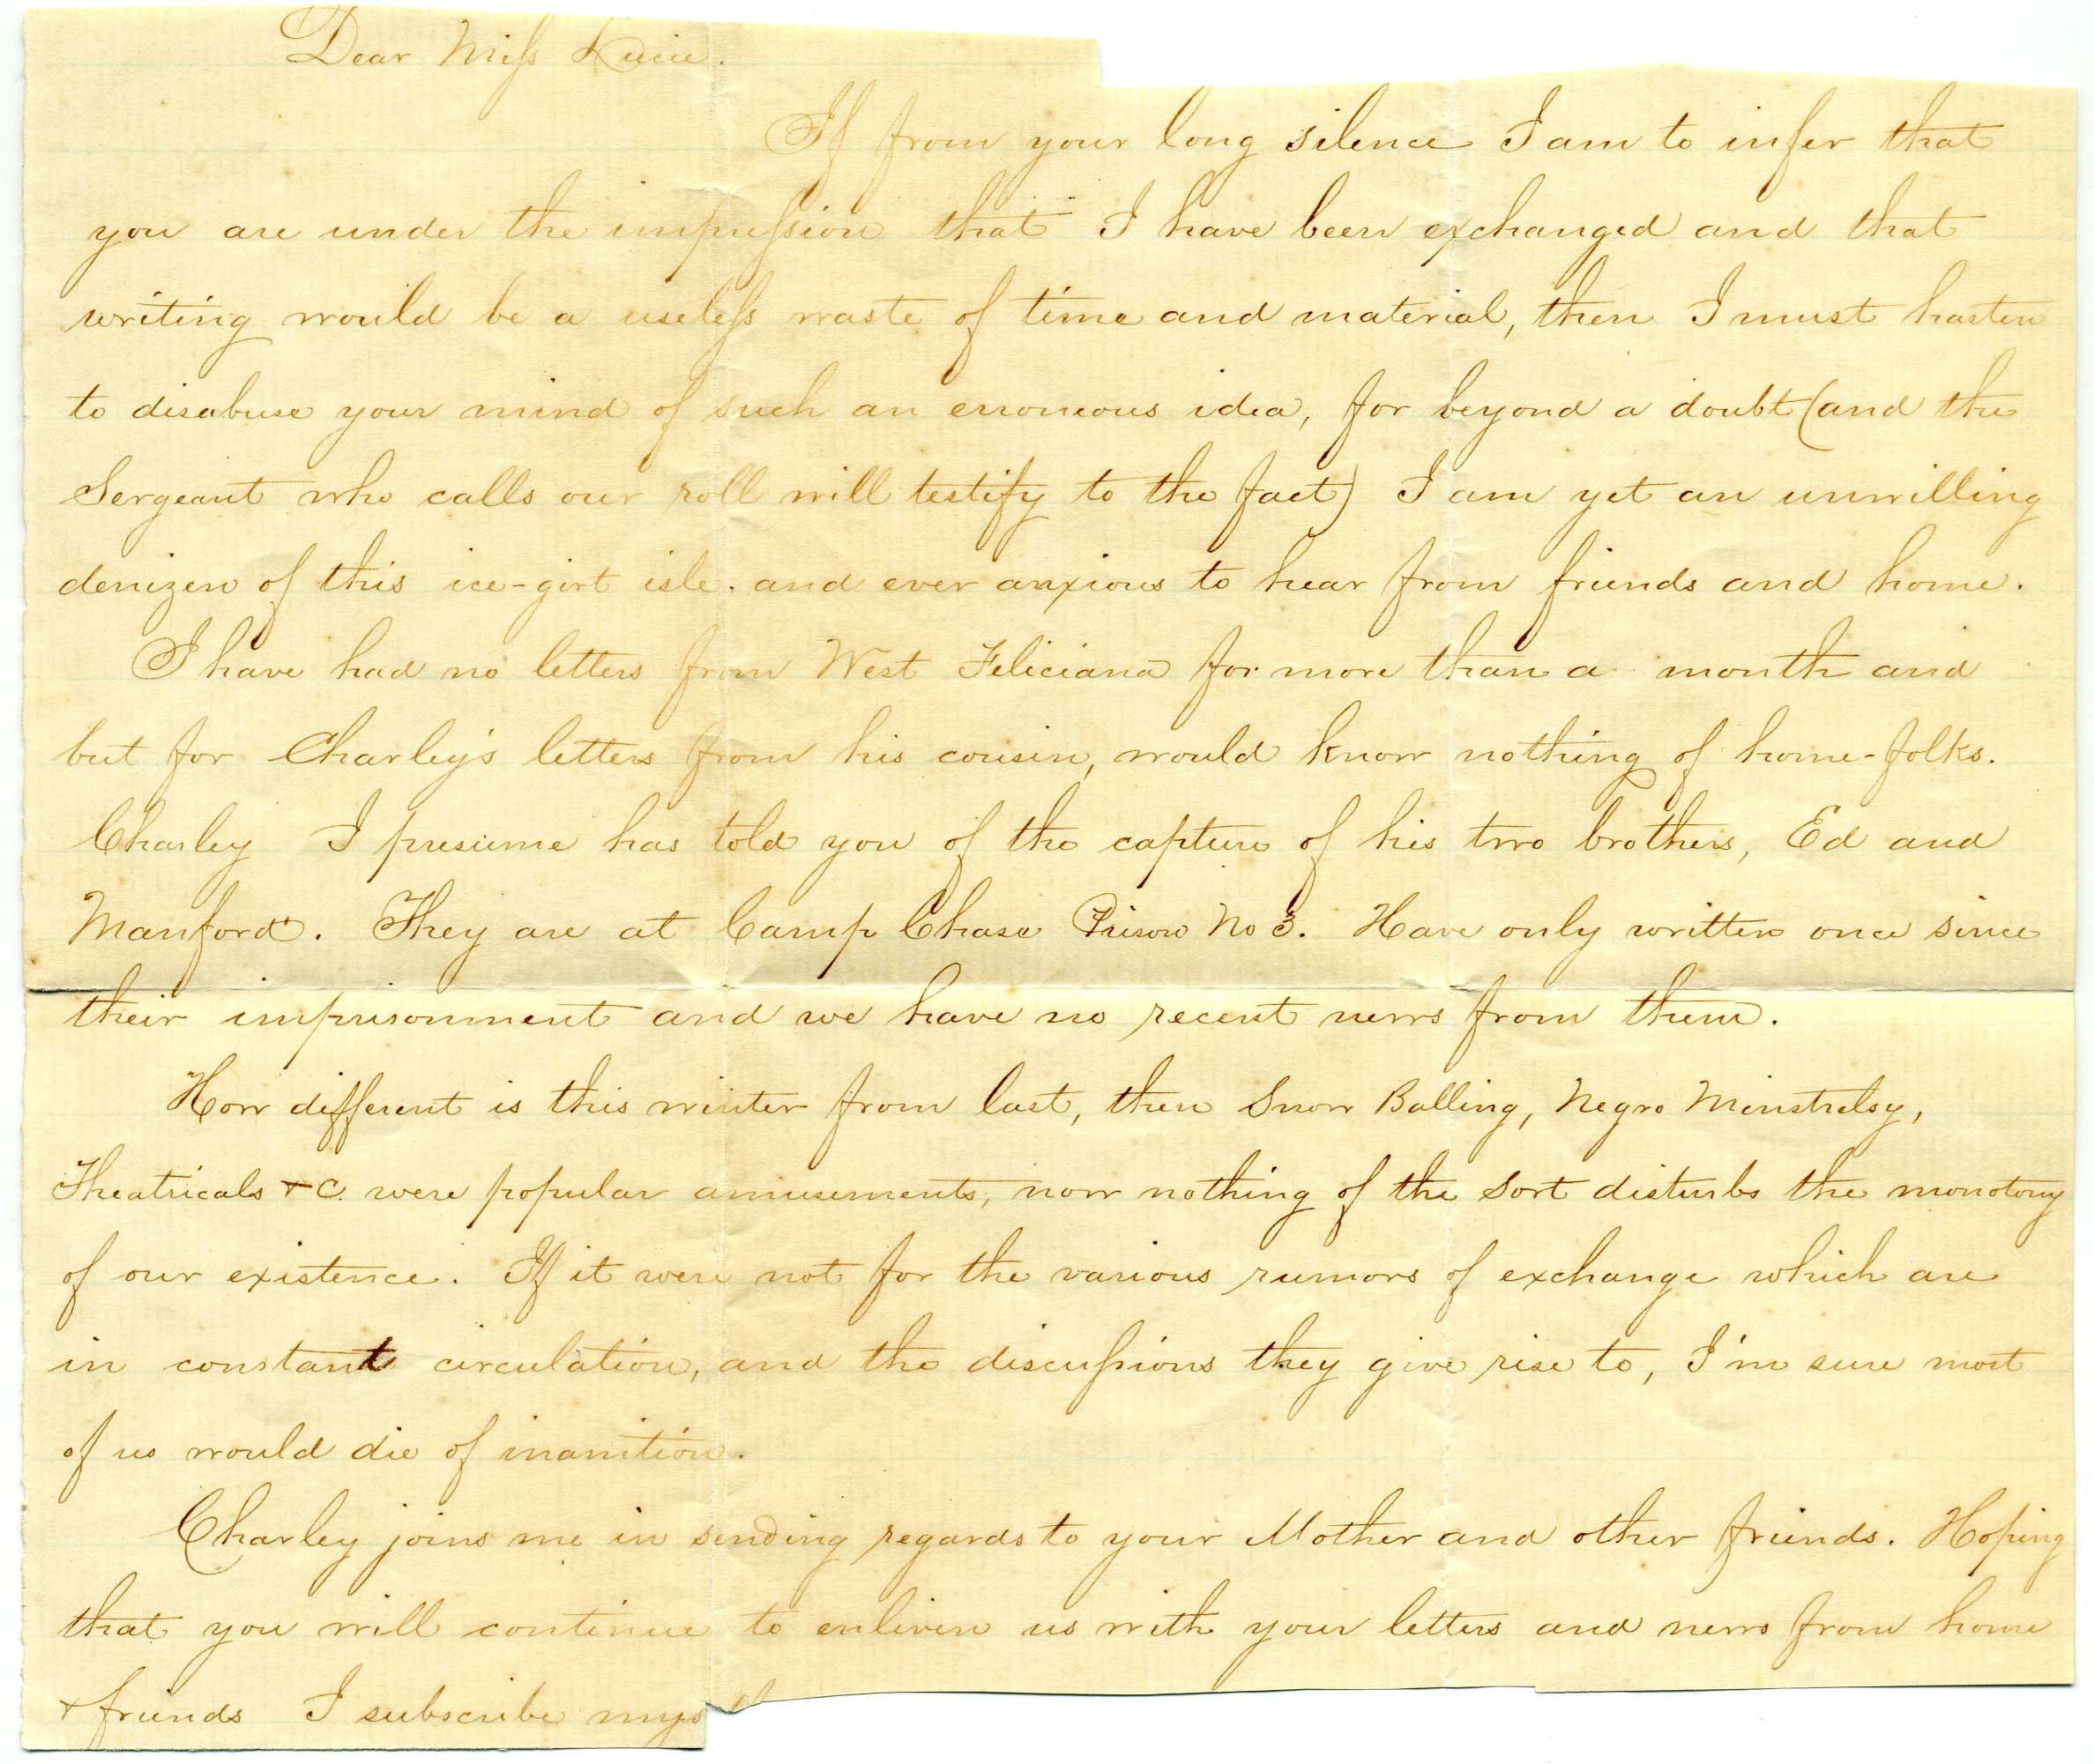 Dear Miss Lucie.
If from your long silence I am to infer that
you are under the impression that I have been exchanged and that
writing would be a useless waste of time and material, then I must hasten
to disabuse your mind of such an erroneous idea, for beyond a doubt (and the
Sergeant who calls our roll will testify to the fact) I am yet an unwilling
denizen of this ice-girt isle. and ever anxious to hear from friends and home.
I have had no letters from West Feliciana for more than a month and
but for Charley's letters from his cousin, would know nothing of home-folks.
Charley I presume has told you of the capture of his two brothers, Ed and
Manford. They are at Camp Chase Prison No 3. Have only written once since
their imprisonment and we have no recent news from them.
How different is this winter from last, then Snow Balling, Negro Minstrelsy,
Theatricals &C. were popular amusements, now nothing of the sort disturbs the monotony
of our existence. If it were not for the various rumors of exchange which are
in constant circulation, and the discussions they give rise to, I'm sure most
of us would die of inanition.
Charley joins me in sending regards to your Mother and other friends. Hoping
that you will continue to enliven us with your letters and news from home
& friends I subscribe mys